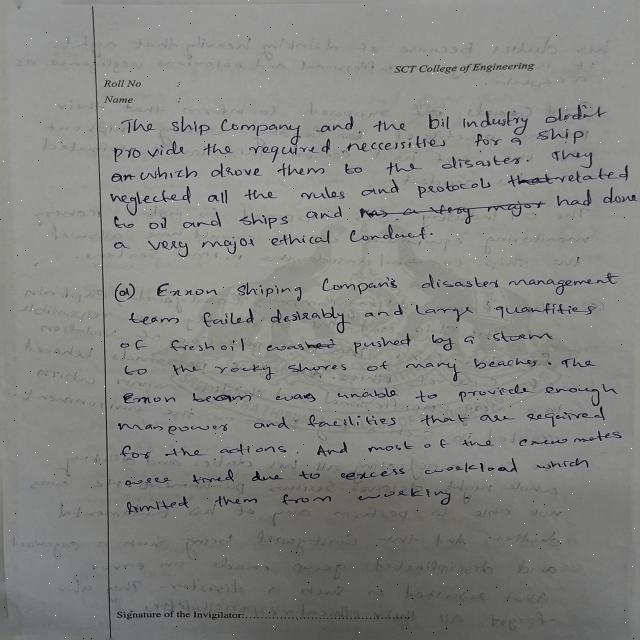 SCT College of Engineering
Roll No :
Name :
The ship Company and the bil industry didnt
provide the required neccesities for a ship
an which drove them to the disaster. They
neglected all the rules and protocols that related
to oil and ships and has a very major had done
a very major ethical conduct.
(d) Exxon shiping Compan's disaster management
team failed desirably and large quantities
of fresh oil washed pushed by a storm
to the rocky shores of many beaches. The
Exxon team was unable to provide enough
manpower and facilities that are required
for the actions. And most of the crew mates
were tired due to excess workload which
limited them from working.
Signature of the Invigilator: